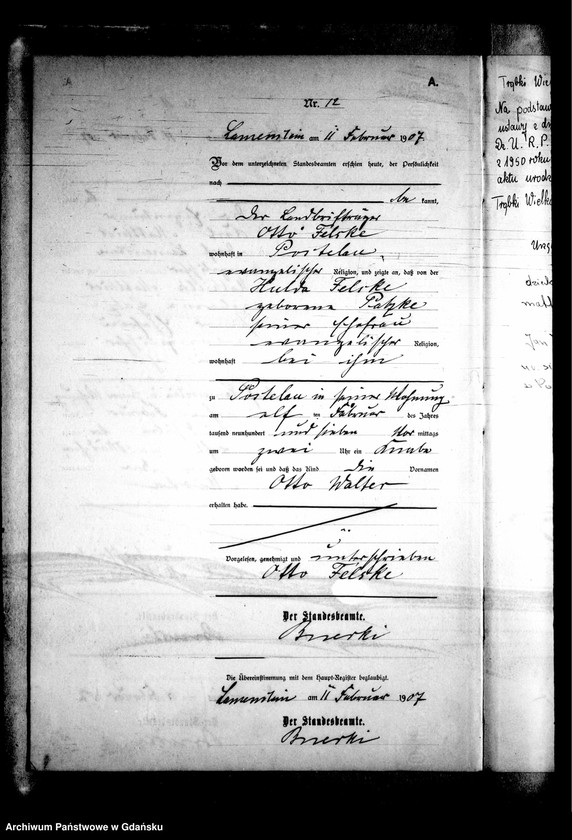 A.
Nr. 12
Lamenstein am 11 Februar 1907
Vor dem unterzeichneten Standesbeamten erschien heute, der Persönlichkeit
nach
be kannt,
der Landbriefträger
Otto Felske
wohnhaft in Postelau,
evangelischer Religion, und zeigte an, daß von der
Hulda Felske
geborene Patzke
seiner Ehefrau
evangelischer Religion,
wohnhaft bei ihm
zu Postelau in seiner Wohnung
am elf ten Februar des Jahres
tausend neunhundert und sieben Vor mittags
um zwei Uhr ein Knabe
geboren worden sei und daß das Kind die Vornamen
Otto Walter
erhalten habe.
Vorgelesen, genehmigt und unterschrieben
Otto Felske
Der Standesbeamte.
Die Übereinstimmung mit dem Haupt-Register beglaubigt.
Lamenstein am 11 Februar 1907
Der Standesbeamte.
Trąbki Wie
Na podstaw
ustawy z d
Dz. U. R. P.
z 1950 roku
aktu urodz
Trąbki Wielk
Archiwum Państwowe w Gdańsku